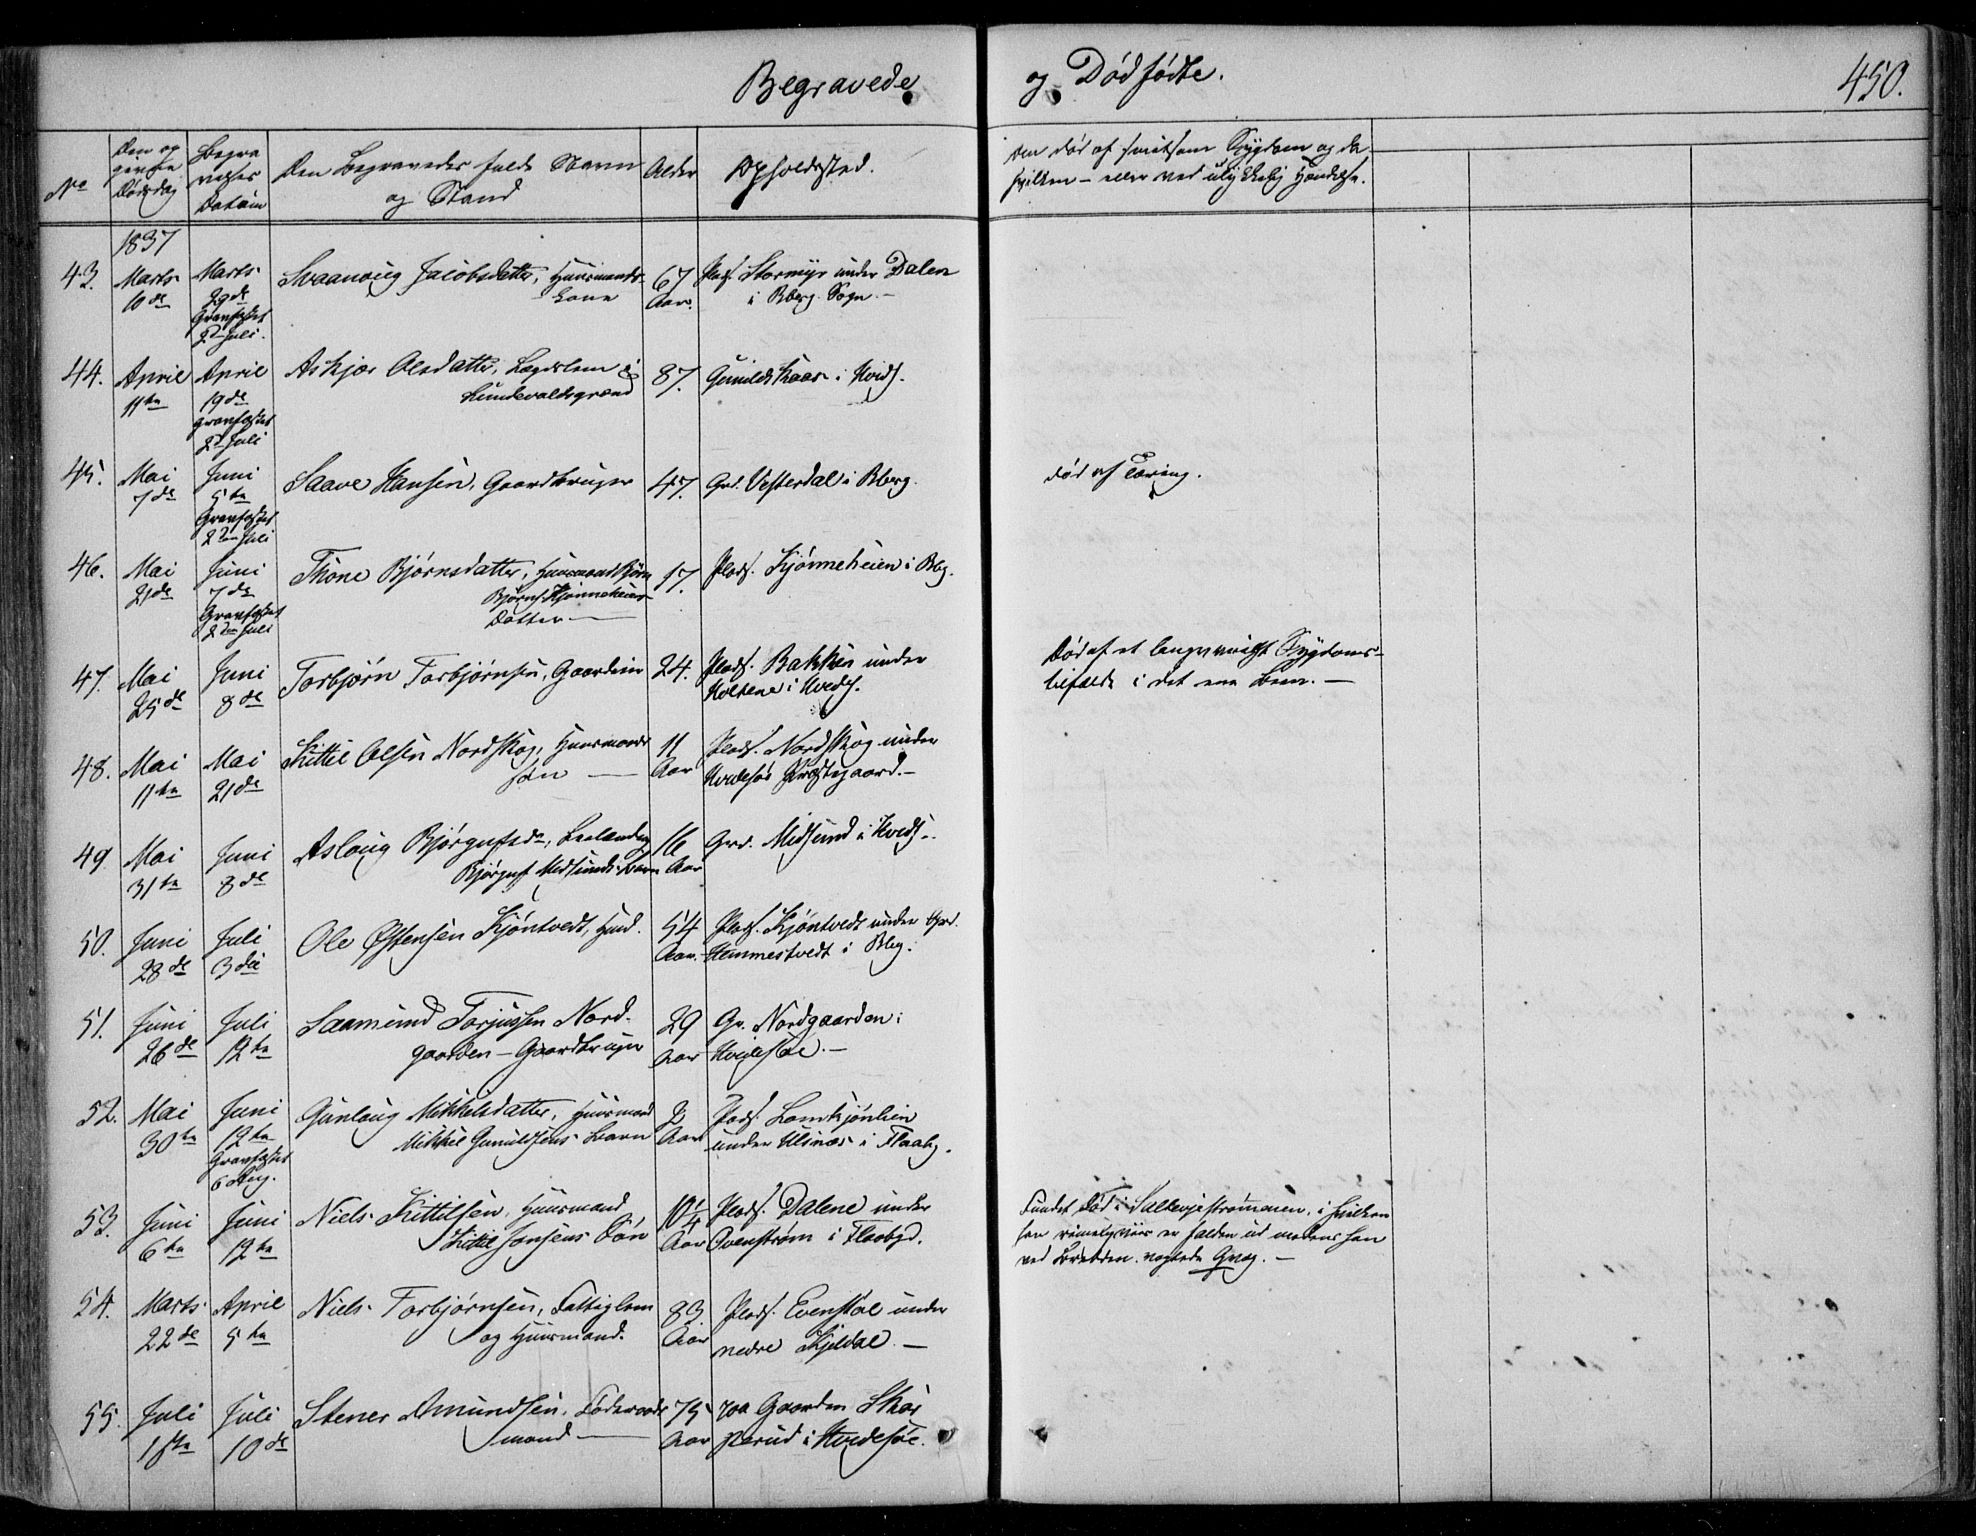 Begravede og Dødfødte. 450.
No
Den opgivne Dødsdag
Begravelses Datum
Den Begravedes fulde Navn og Stand
Alder
Opholdssted.
Om død af smitsom Sygdom og da
hvilken – eller ved ulykkelig Hændelse.
1837
43. Marts 10de Marts 29de Gravfæstet 2den Juli. Svaanoug Jacobsdatter, Huusmands-
kone 67 Aar. Plads. Stormyr under Dalen
i Bberg. Sogn. –
44. April 11te April 19de gravfæstet 2d Juli Askjær Olsdatter, Lægdslem i
Hundevaldsgrænd 87. Gunildskaas i Hvids.
45. Mai 7de Juni 5te Gravfæstet 2den Juli Saave Hansen, Gaardbruger 47. Grd. Vesterdal i Bberg. død af Tæring.
46. Mai 21de Juni 7de Gravfæstet 2den Juli Thone Bjørnsdatter, Huusmand Bjørn
Bjørns. Kjønneheiens
Datter – 17. Plads. Kjønneheien i Bbg.
47. Mai 25de Juni 8de Torbjørn Torbjørnsen, Gaardmn 24. Plads. Bakken under
Holtene i Hvids. Død af et langvarigt Sygdoms-
tilfælde i det ene Been. –
48. Mai 11te Mai 21de Kittil Olsen Nordskog, Huusmands
søn – 11 Aar Plads. Nordskog under
Hvidesøe Præstegaard. –
49. Mai 31te Juni 8de Aslaug Bjørgufsdr,
Bjørguf Midsunds Barn 16 Aar Grd. Midsund i Hvids.
50. Juni 28de Juli 3die Ole Østensen Kjøntvedt, Husd. 54 Aar. Plads. Kjøntvedt under Grd.
Hemmestvedt i Bbg.
51. Juni 26de Juli 12te Saamund Torjussen Nord-
gaarden – Gaardbruger 29 Aar Gr. Nordgaarden i
Hvidesøe. –
52. Mai 30te Juni 12te Gravfæstet 6 Aug. Gunlaug Mikkelsdatter, Huusmand
Mikkel Gunuldsens Barn 2 Aar Plads. Lomkjønlien
under Ulsnæs i Flaabg.
53. Juni 6te Juni 12te Niels Kittilsen, Huusmand
Kittil Jonsens Søn 10¼ Aar Plads. Dalene under
Ovenstrøm i Flaabgd. Fundet død i Sallevjestrømmen, i hvilken
han rimeligviis er falden ud medens han
ved Bredden vogtede Qvæg. –
54. Marts 22de April 5te Niels Torbjørnsen, Fattiglem
og Huusmand. 83 Aar Plads. Evenstøl under
nedre Kjeldal –
55. Juli Juli 10de Stener Amundsen, Føderaads
mand – 75 Aar paa Gaarden Skor
perud i Hvidesøe.